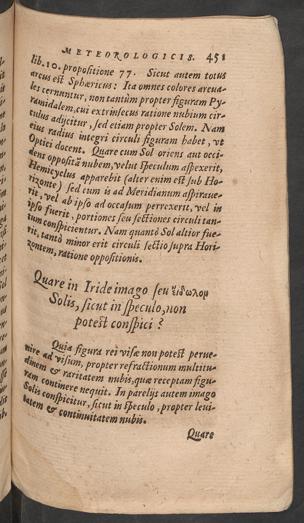 METEOROLOGICIS. 451
lib. 10. propositione 77. Sicut autem totus
arcus est Sphæricus: Ita omnes colores arcua-
les cernuntur, non tantùm propter figuram Py-
ramidalem, cui extrinsecus ratione nubium cir-
culus adijcitur, sed etiam propter Solem. Nam
eius radius integri circuli figuram habet, vt
Optici docent. Quare cum Sol oriens aut occi-
dens oppositã nubem, velut speculum aspexerit,
Hemicyclus apparebit (alter enim est sub Ho-
rizonte) sed cum is ad Meridianum aspiraue-
rit, vel ab ipso ad occasum perrexerit, vel in
ipso fuerit, portiones seu sectiones circuli tan-
tum conspicientur. Nam quantò Sol altior fue-
rit, tantò minor erit circuli sectio supra Hori-
zontem, ratione oppositionis.
Quare in Iride imago seu εἴδωλον
Solis, sicut in speculo, non
potest conspici?
Quia figura rei visæ non potest perue-
nire ad visum, propter refractionum multitu-
dinem & raritatem nubis, quæ receptam figu-
ram continere nequit. In parelijs autem imago
Solis conspicitur, sicut in speculo, propter leui-
tatem & continuitatem nubis.
Quare